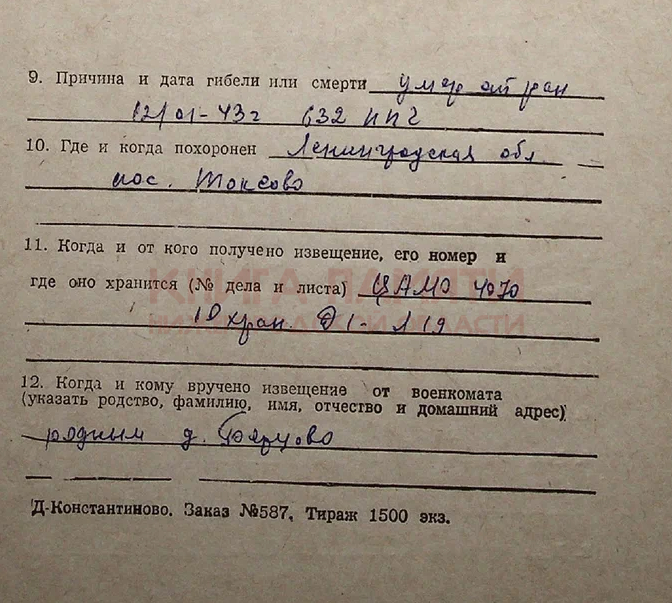 9. Причина и дата гибели или смерти умер от ран
12/01-43г 632 ППГ
10. Где и когда похоронен Ленинградская обл
пос. Токсово
11. Когда и от кого получено извещение, его номер и
где оно хранится (№ дела и листа) ЦАМО 4070
КНИГА ПАМЯТИ
10 хран. Д 1- Л 19
НИЖЕГОРОДСКОЙ ОБЛАСТИ
12. Когда и кому вручено извещение от военкомата
(указать родство, фамилию, имя, отчество и домашний адрес)
родным д.
Д-Константиново. Заказ №587, Тираж 1500 экз.